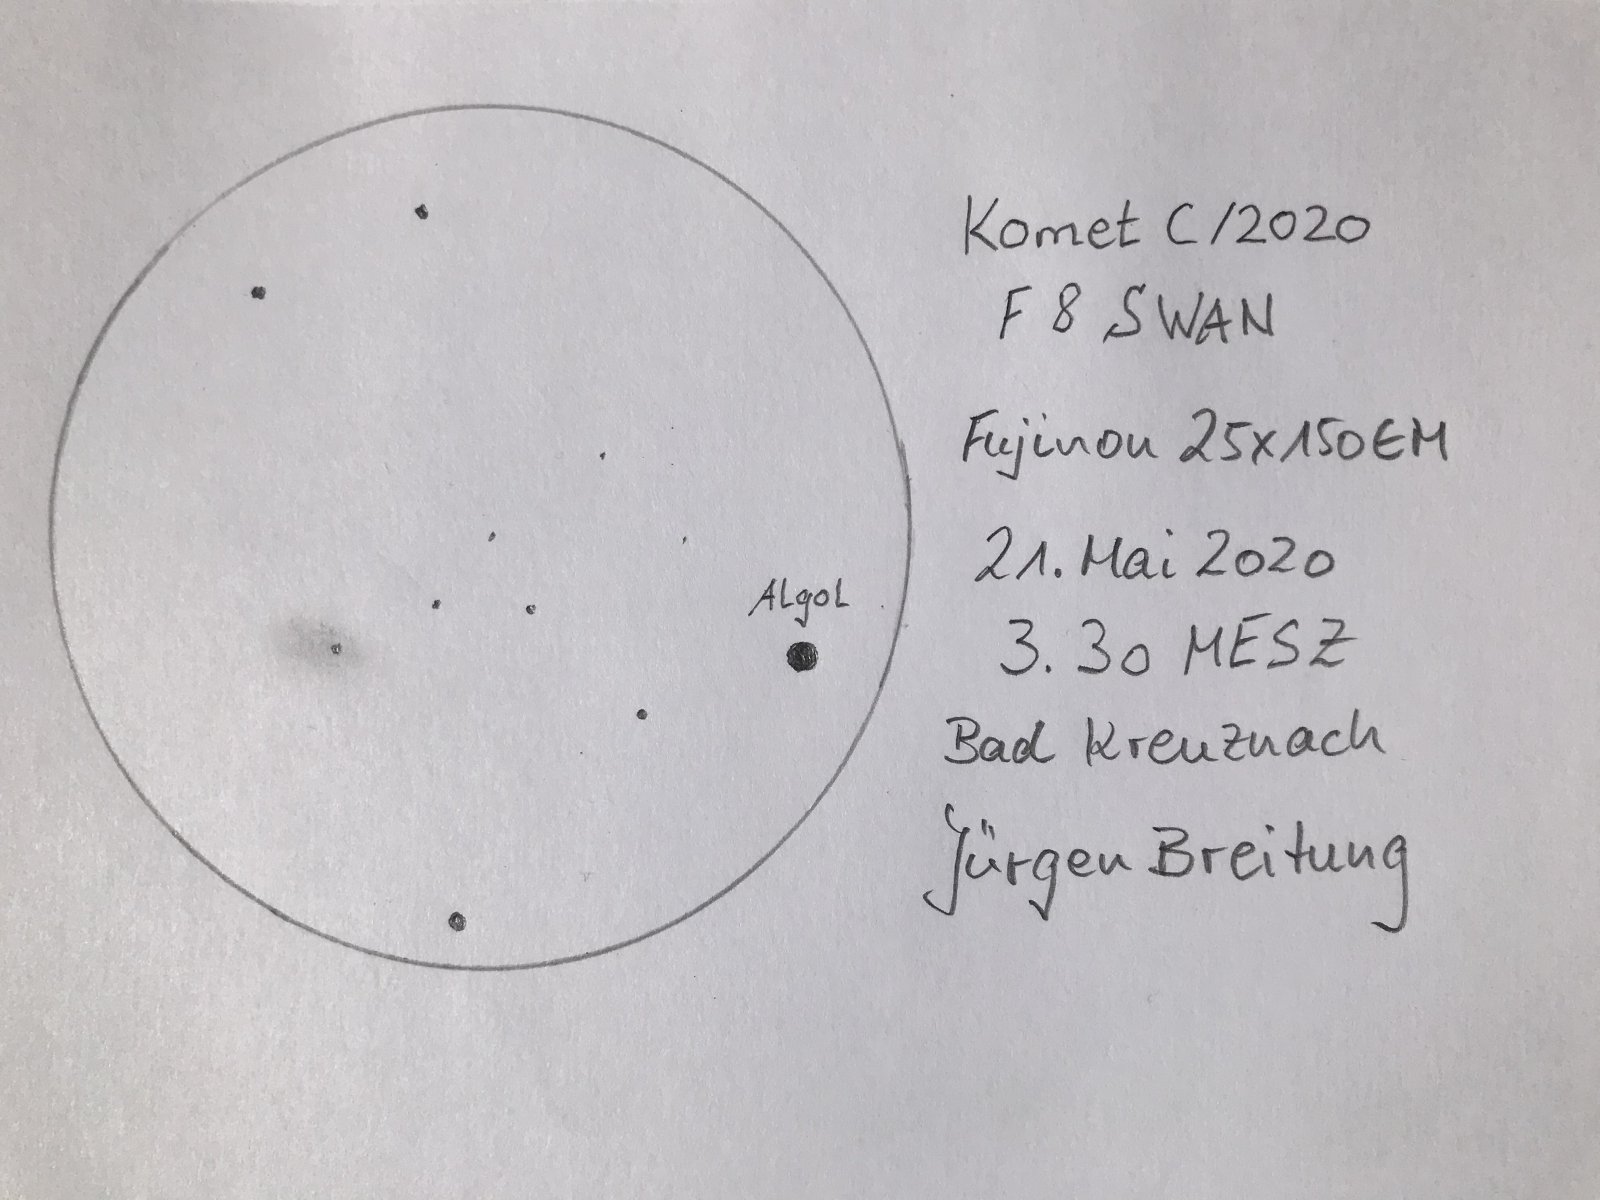 ALgoL
Komet C/2020
F8 SWAN
Fujinon 25x150EM
21. Mai 2020
3.30 MESZ
Bad Kreuznach
Jürgen Breitung